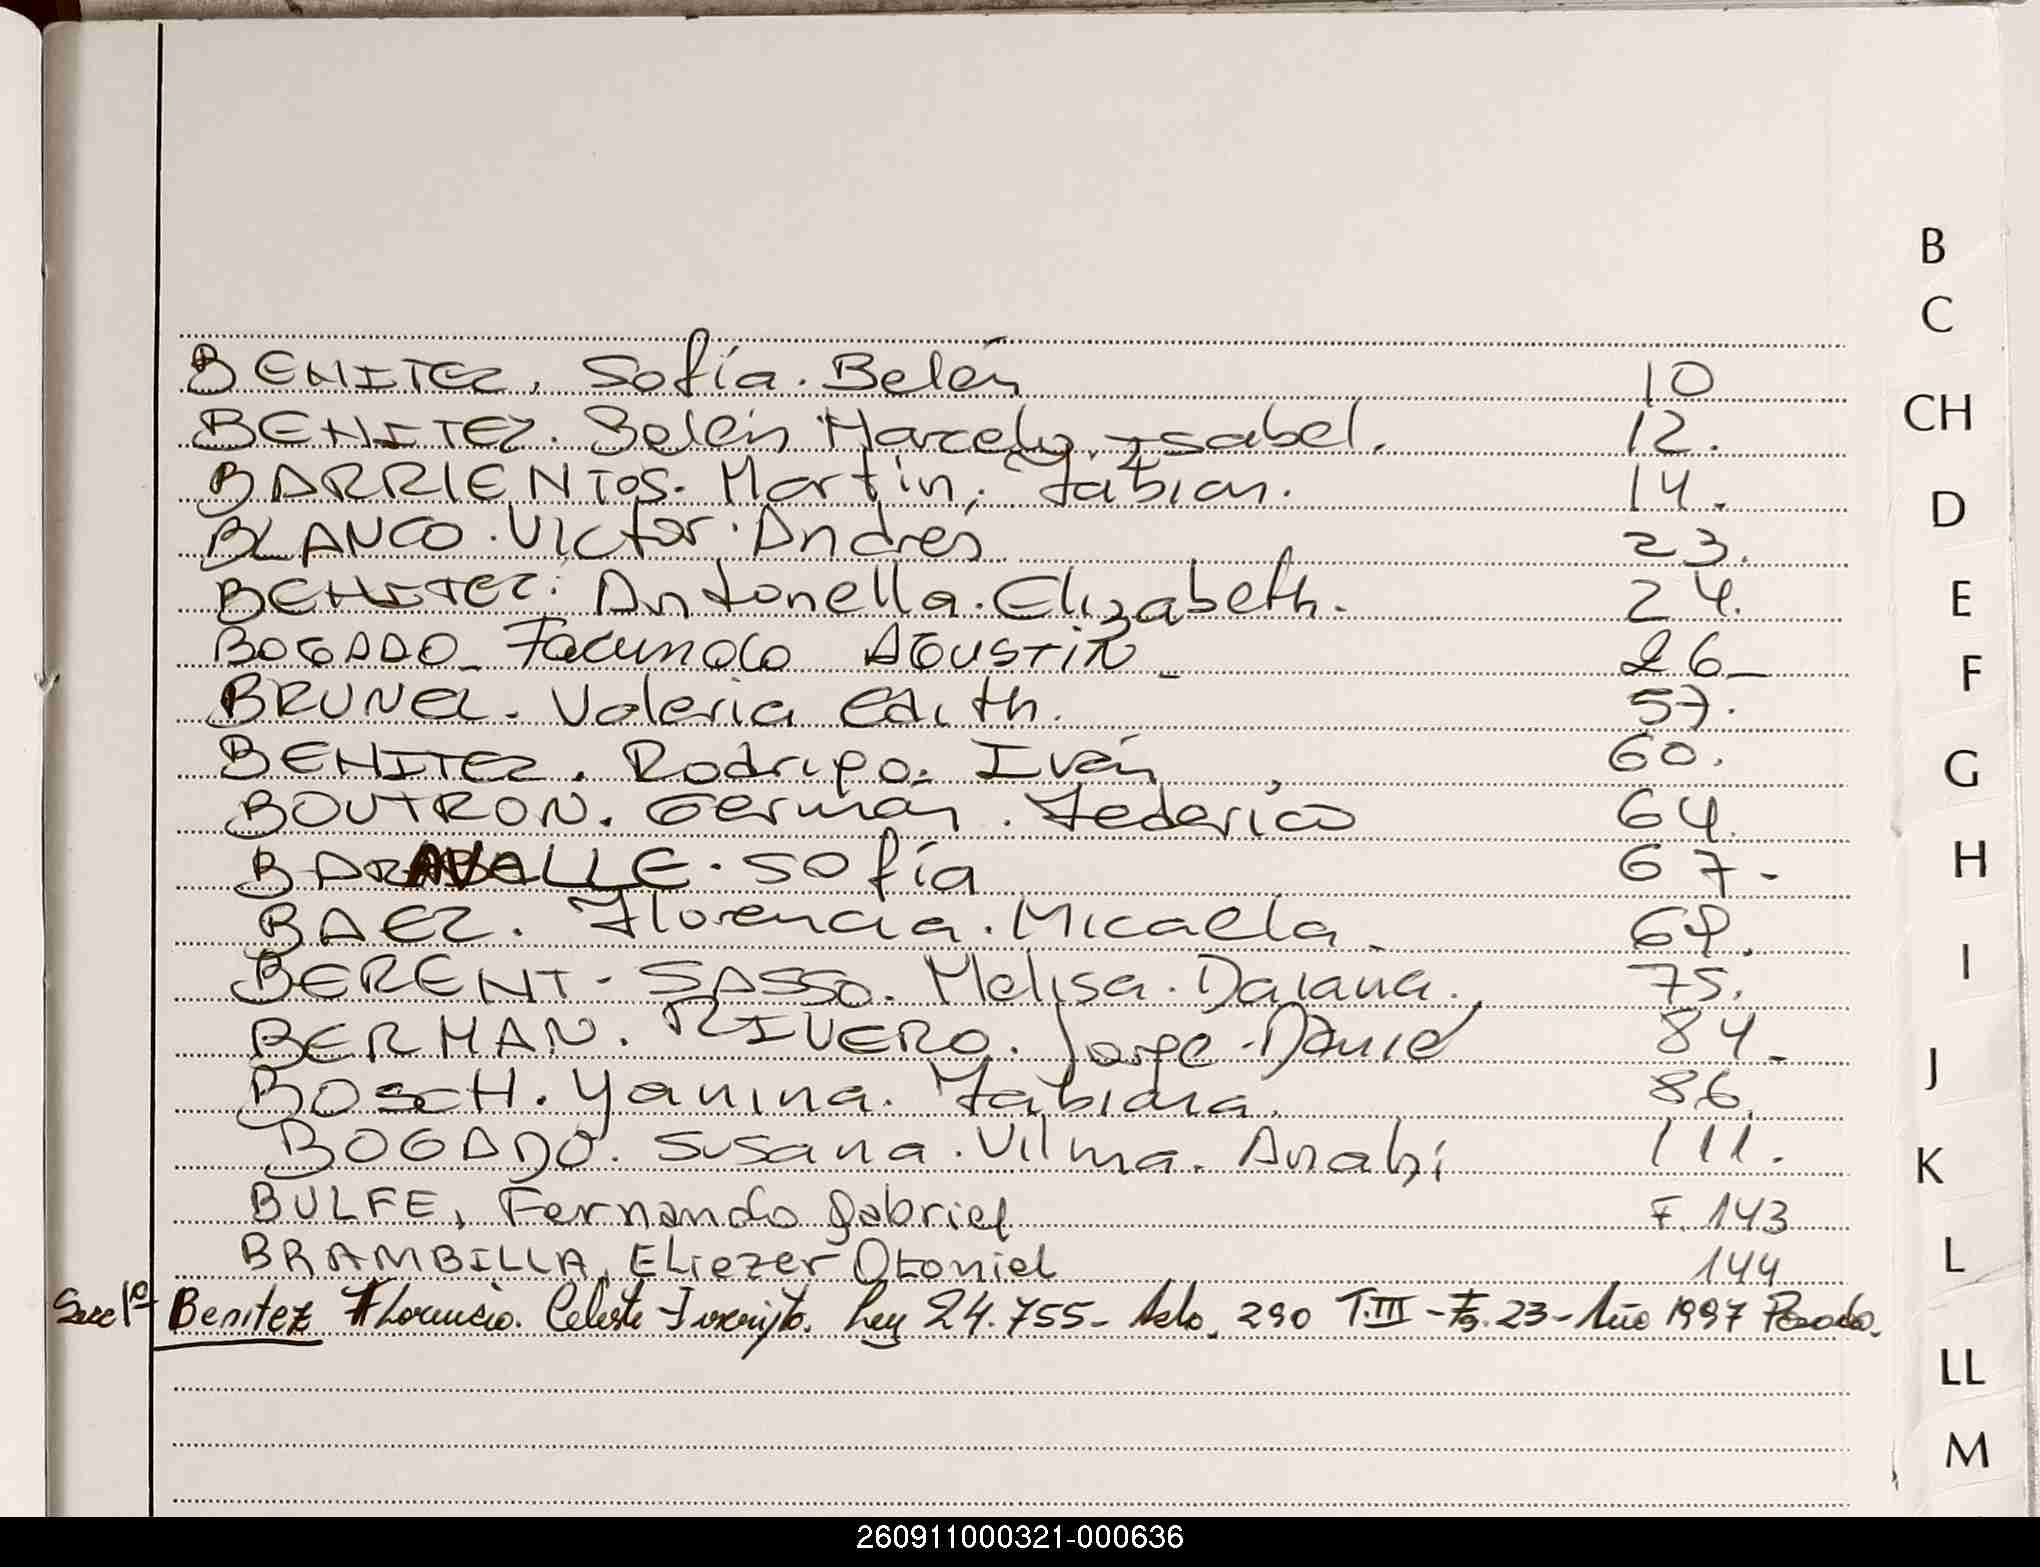 BENITEZ. Sofía. Belén 10
BENITEZ. Belén Marcela. Isabel. 12.
BARRIENTOS. Martín. Fabian. 14.
BLANCO. Victor. Andrés 23.
BENITEZ. Antonella. Elizabeth. 24.
BOGADO_ Facundo AGUSTIN_ 26_
BRUNEL. Valeria Edith. 57.
BENITEZ. Rodrigo. Iván 60.
BOUTRON. Germán. Federico 64.
BARAVALLE. Sofía 67-
BAEZ. Florencia. Micaela. 69.
BERENT-SASSO. Melisa. Daiana. 75.
BERMAN. RIVERO. Jorge. Daniel 84_
BOSCH. Yanina. Fabiana. 86.
BOGADO. Susana. Vilma. Anahi 111.
BULFE, Fernando Gabriel F. 143
BRAMBILLA, Eliezer Otoniel 144
Secc 1º Benitez Florencio. Celeste Inscripto. Ley 24.755- Acto. 290 T.III - Fº. 23- Año 1997 Posadas.
B
C
CH
D
E
F
G
H
I
J
K
L
LL
M
260911000321-000636